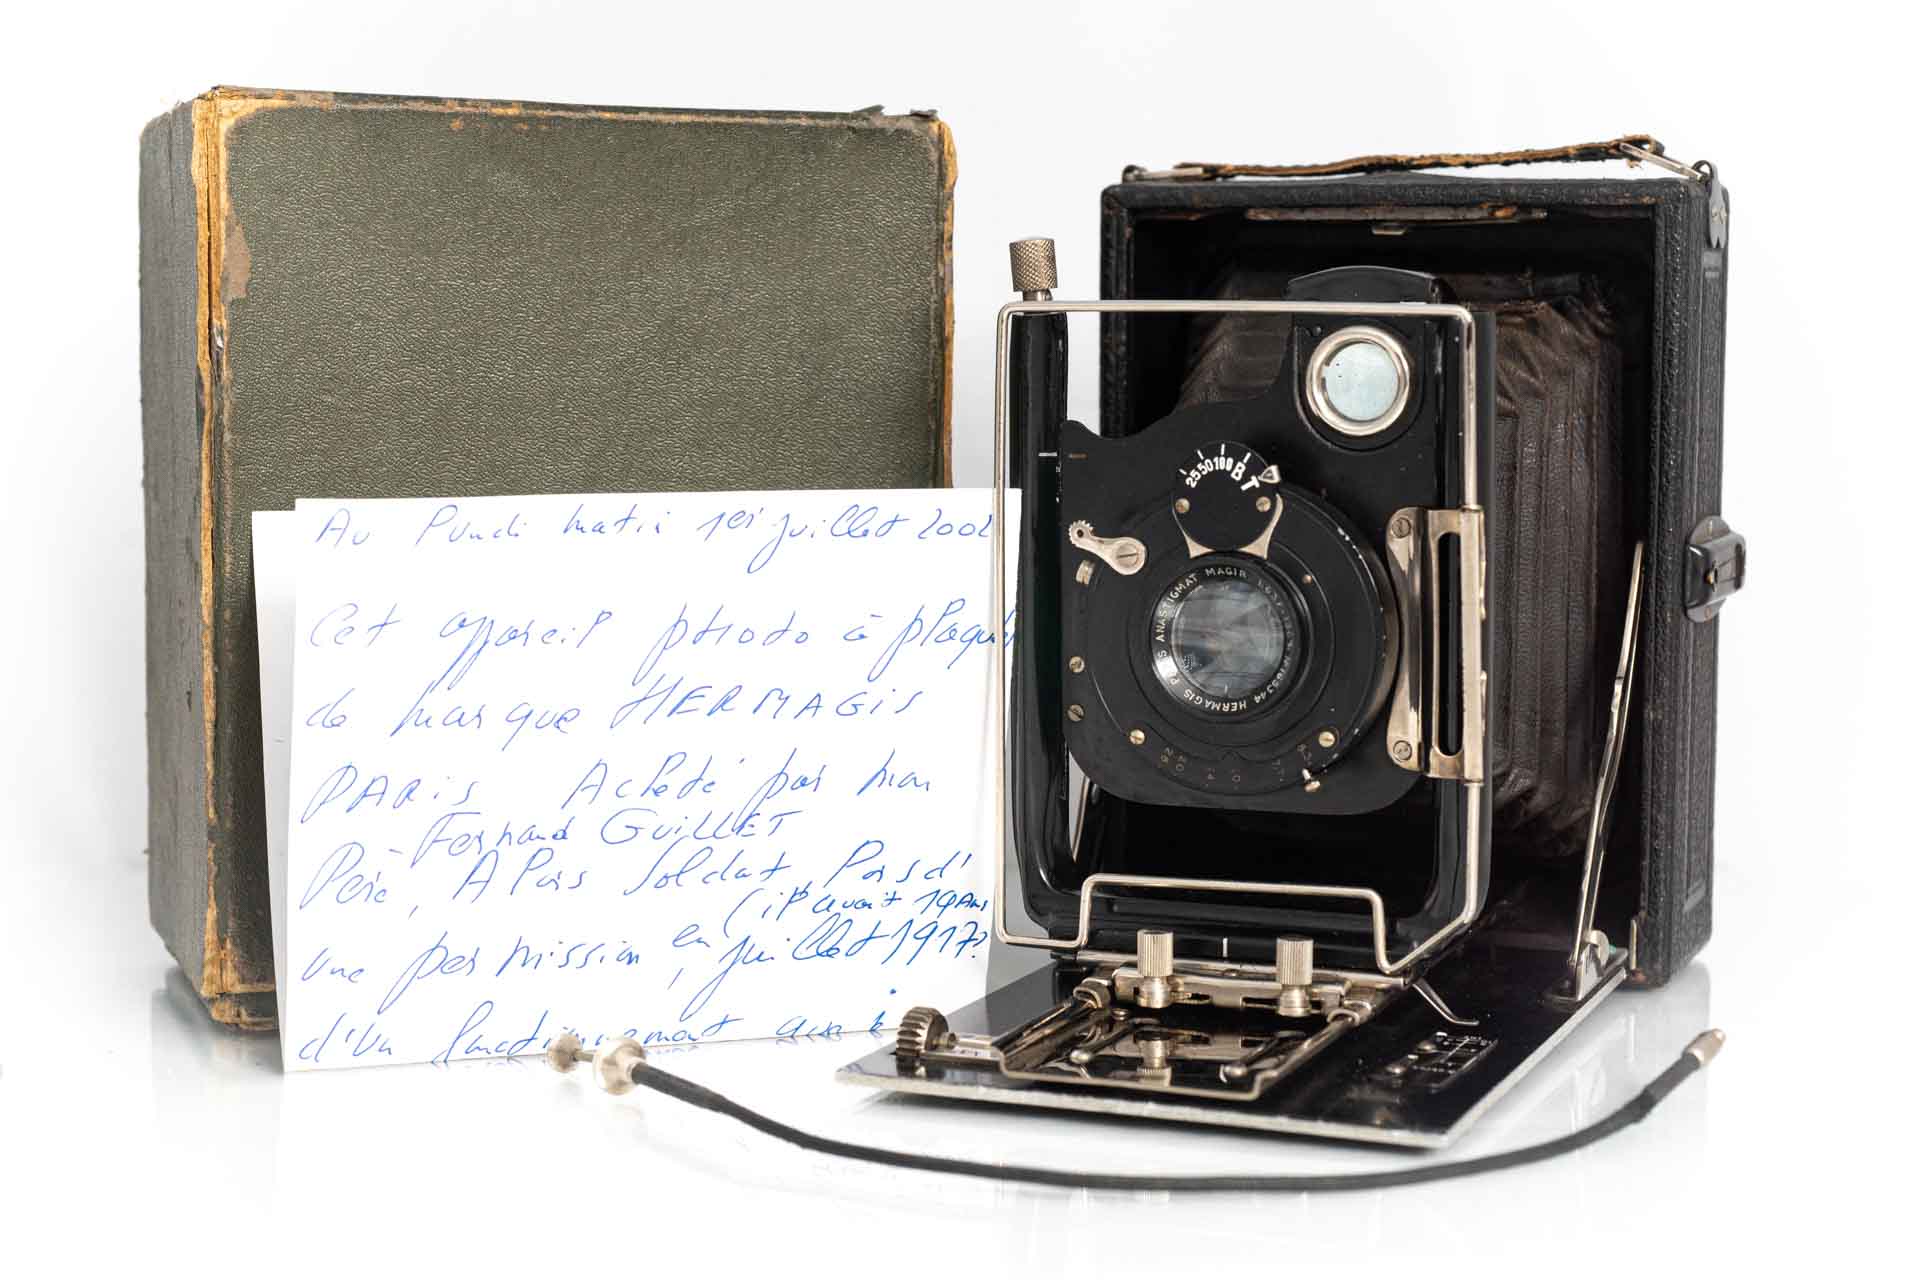 Au Lundi matin 1er juillet 2002
Cet appareil photo à plaques
de marque HERMAGIS
PARIS Acheté par mon
Fernand GUILLET
Père, Alors Soldat Lors d'
(il avait 19 Ans
une permission en juillet 1917?
d'un fonctionnement
25 50 100 B T
HERMAGIS PARIS ANASTIGMAT MAGIR